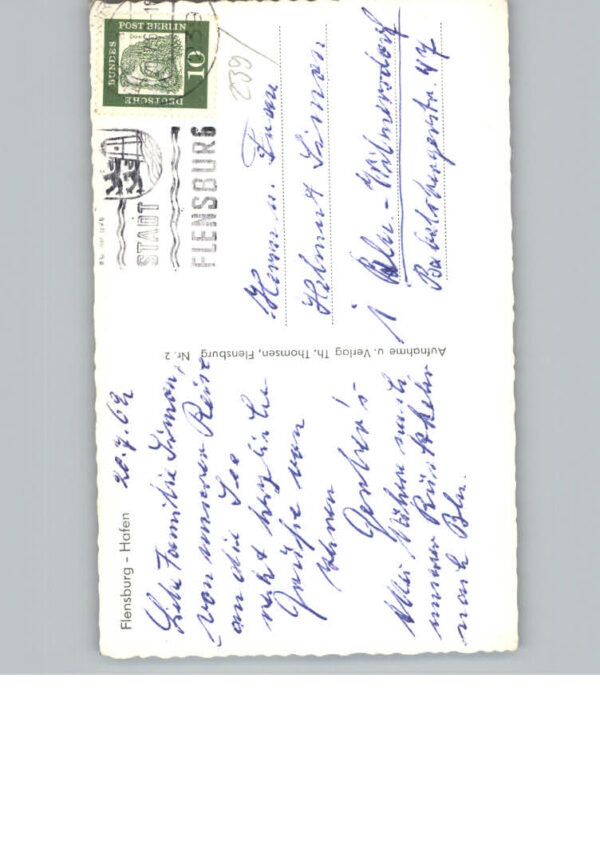 Flensburg - Hafen
20.7.62
Liebe Familie Simon,
von unserer Reise
an die See
recht herzliche
Grüße von
Ihnen
Alles Nähere nach
unserer Rückkehr
nach Bln.
Aufnahme u. Verlag Th. Thomsen, Flensburg Nr. 2
DEUTSCHE
BUNDES
POST BERLIN
10
STADT
FLENSBURG
239
Herrn u. Frau
Helmut Simon
1 Bln.-Wilmersdorf
Babelsbergerstr. 47